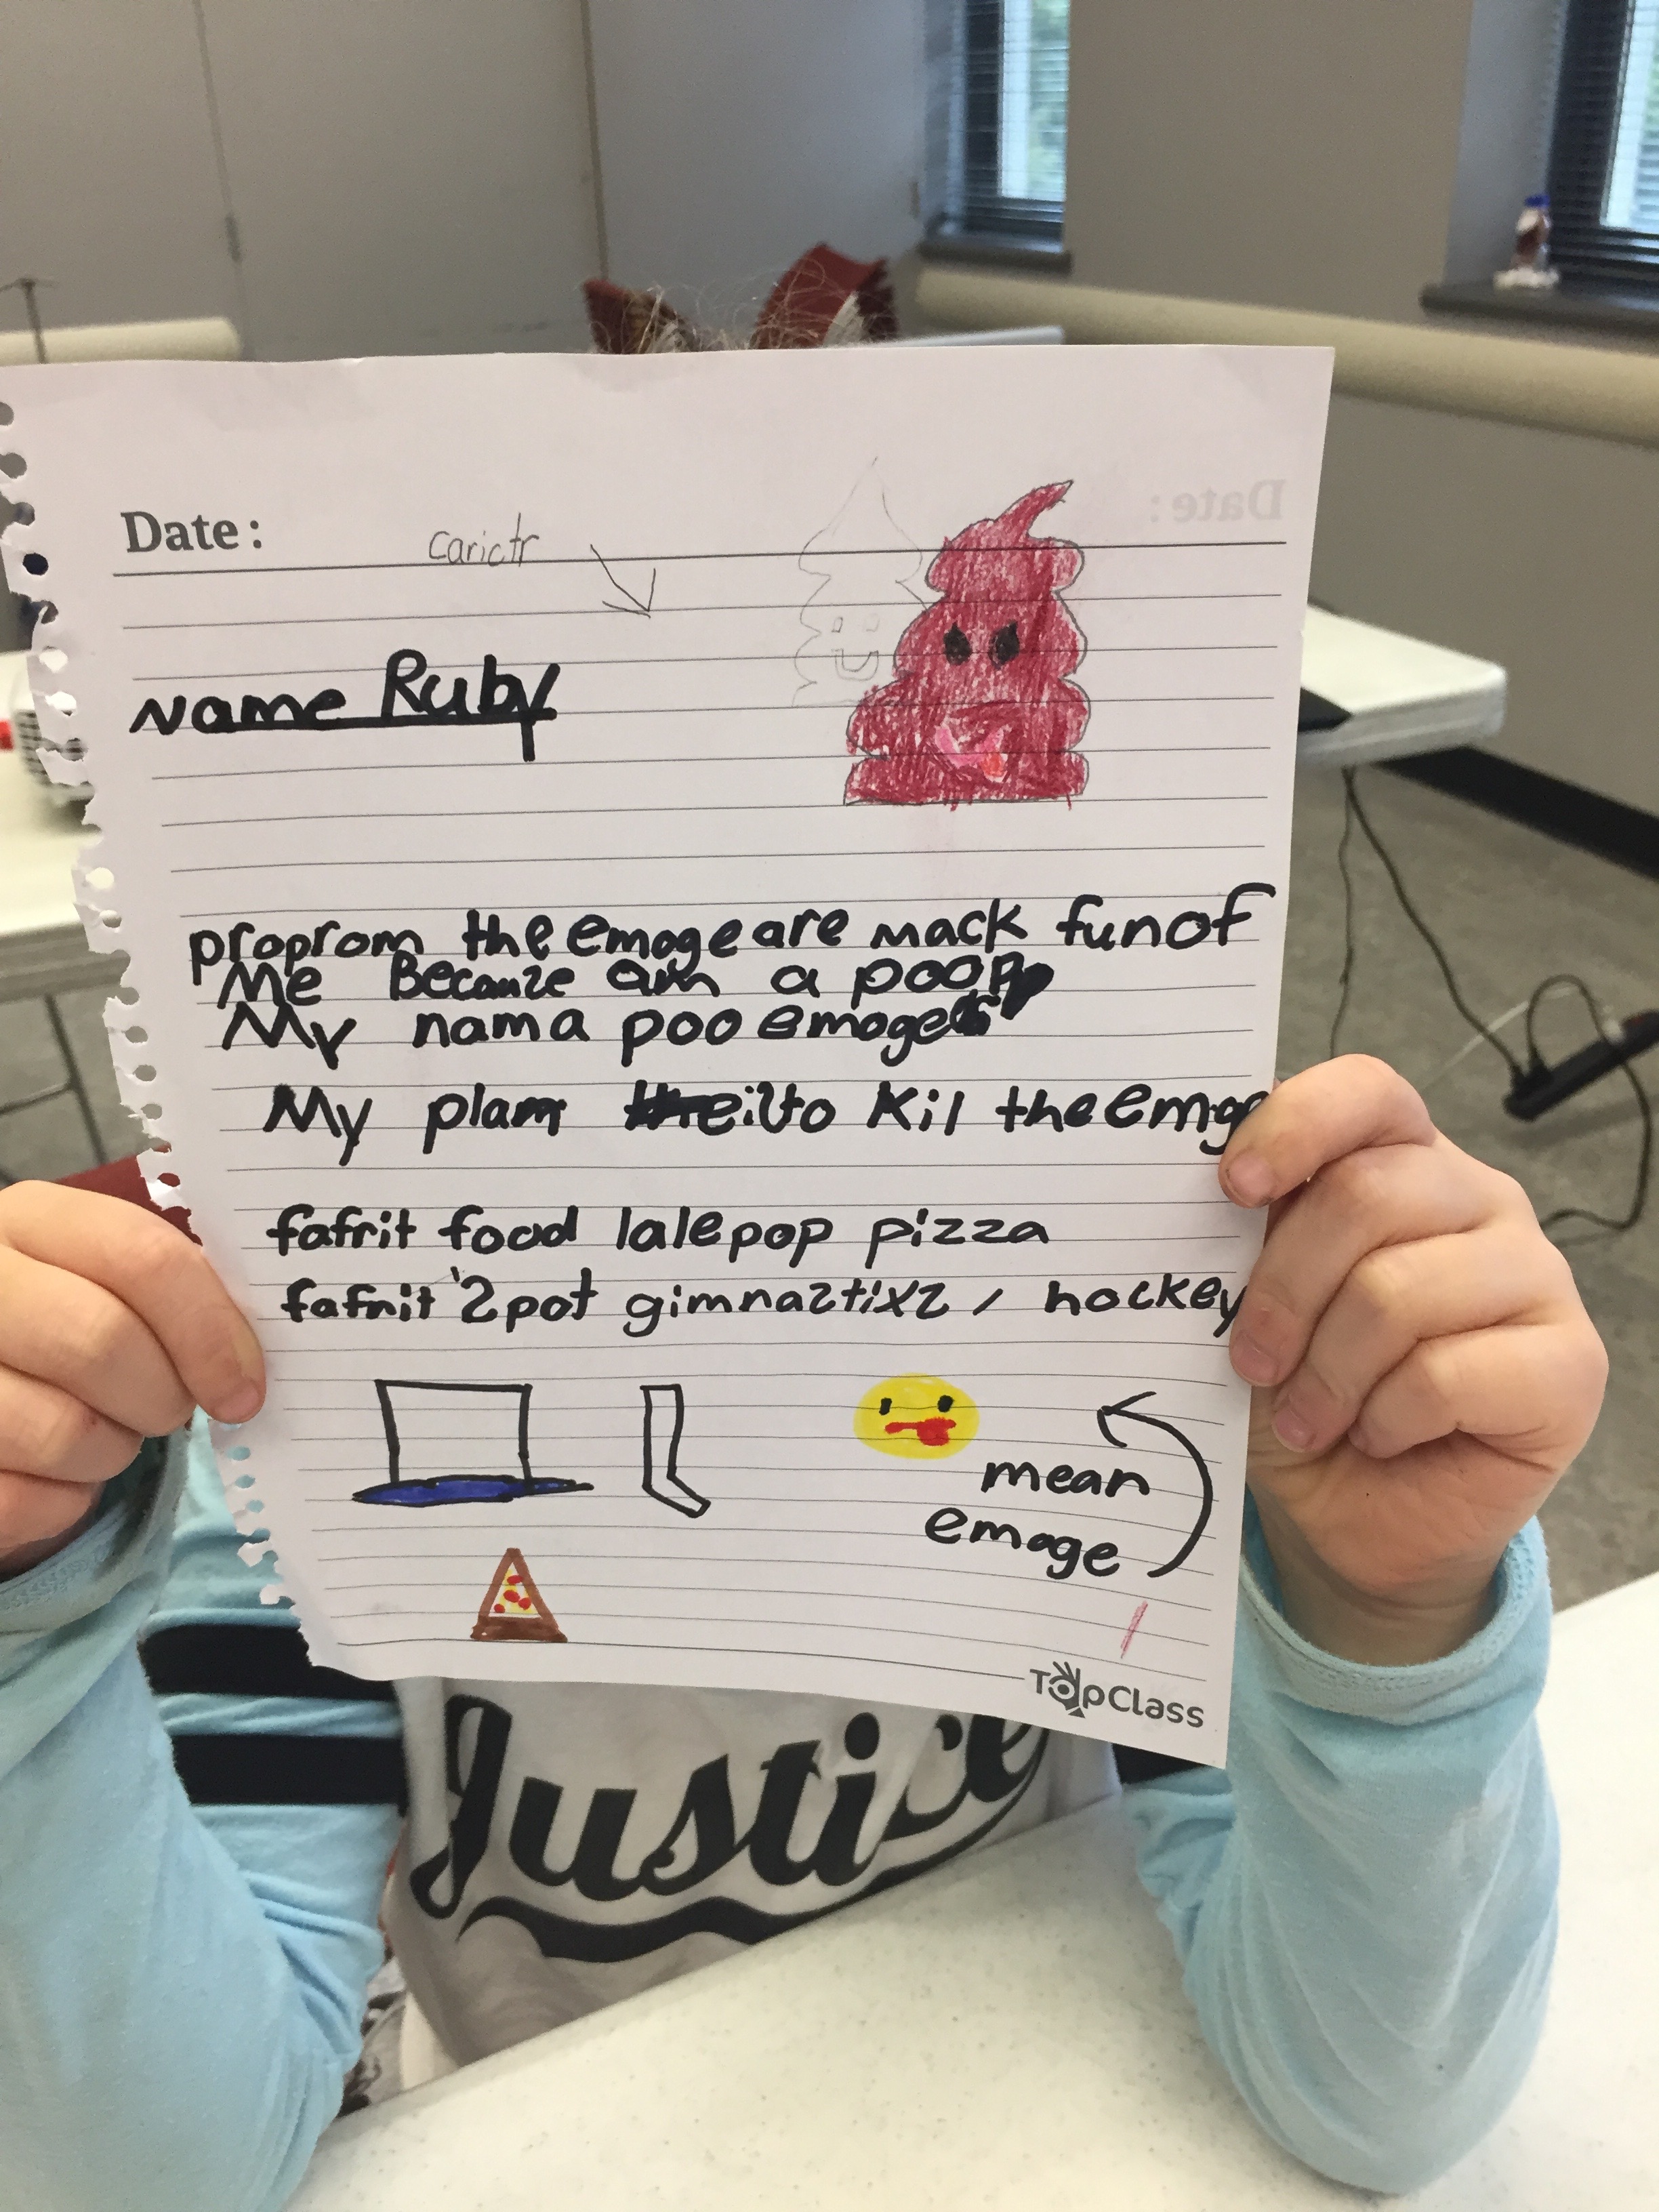 Date:
carictr
Name Ruby
proprom the emoge are mack fun of
Me Becauze am a poop
My nam a poo emoge
My plam is to Kil the emge
fafrit food lalepop pizza
fafrit spot gimnaztixz / hockey
mean
emoge
TopClass
Justice